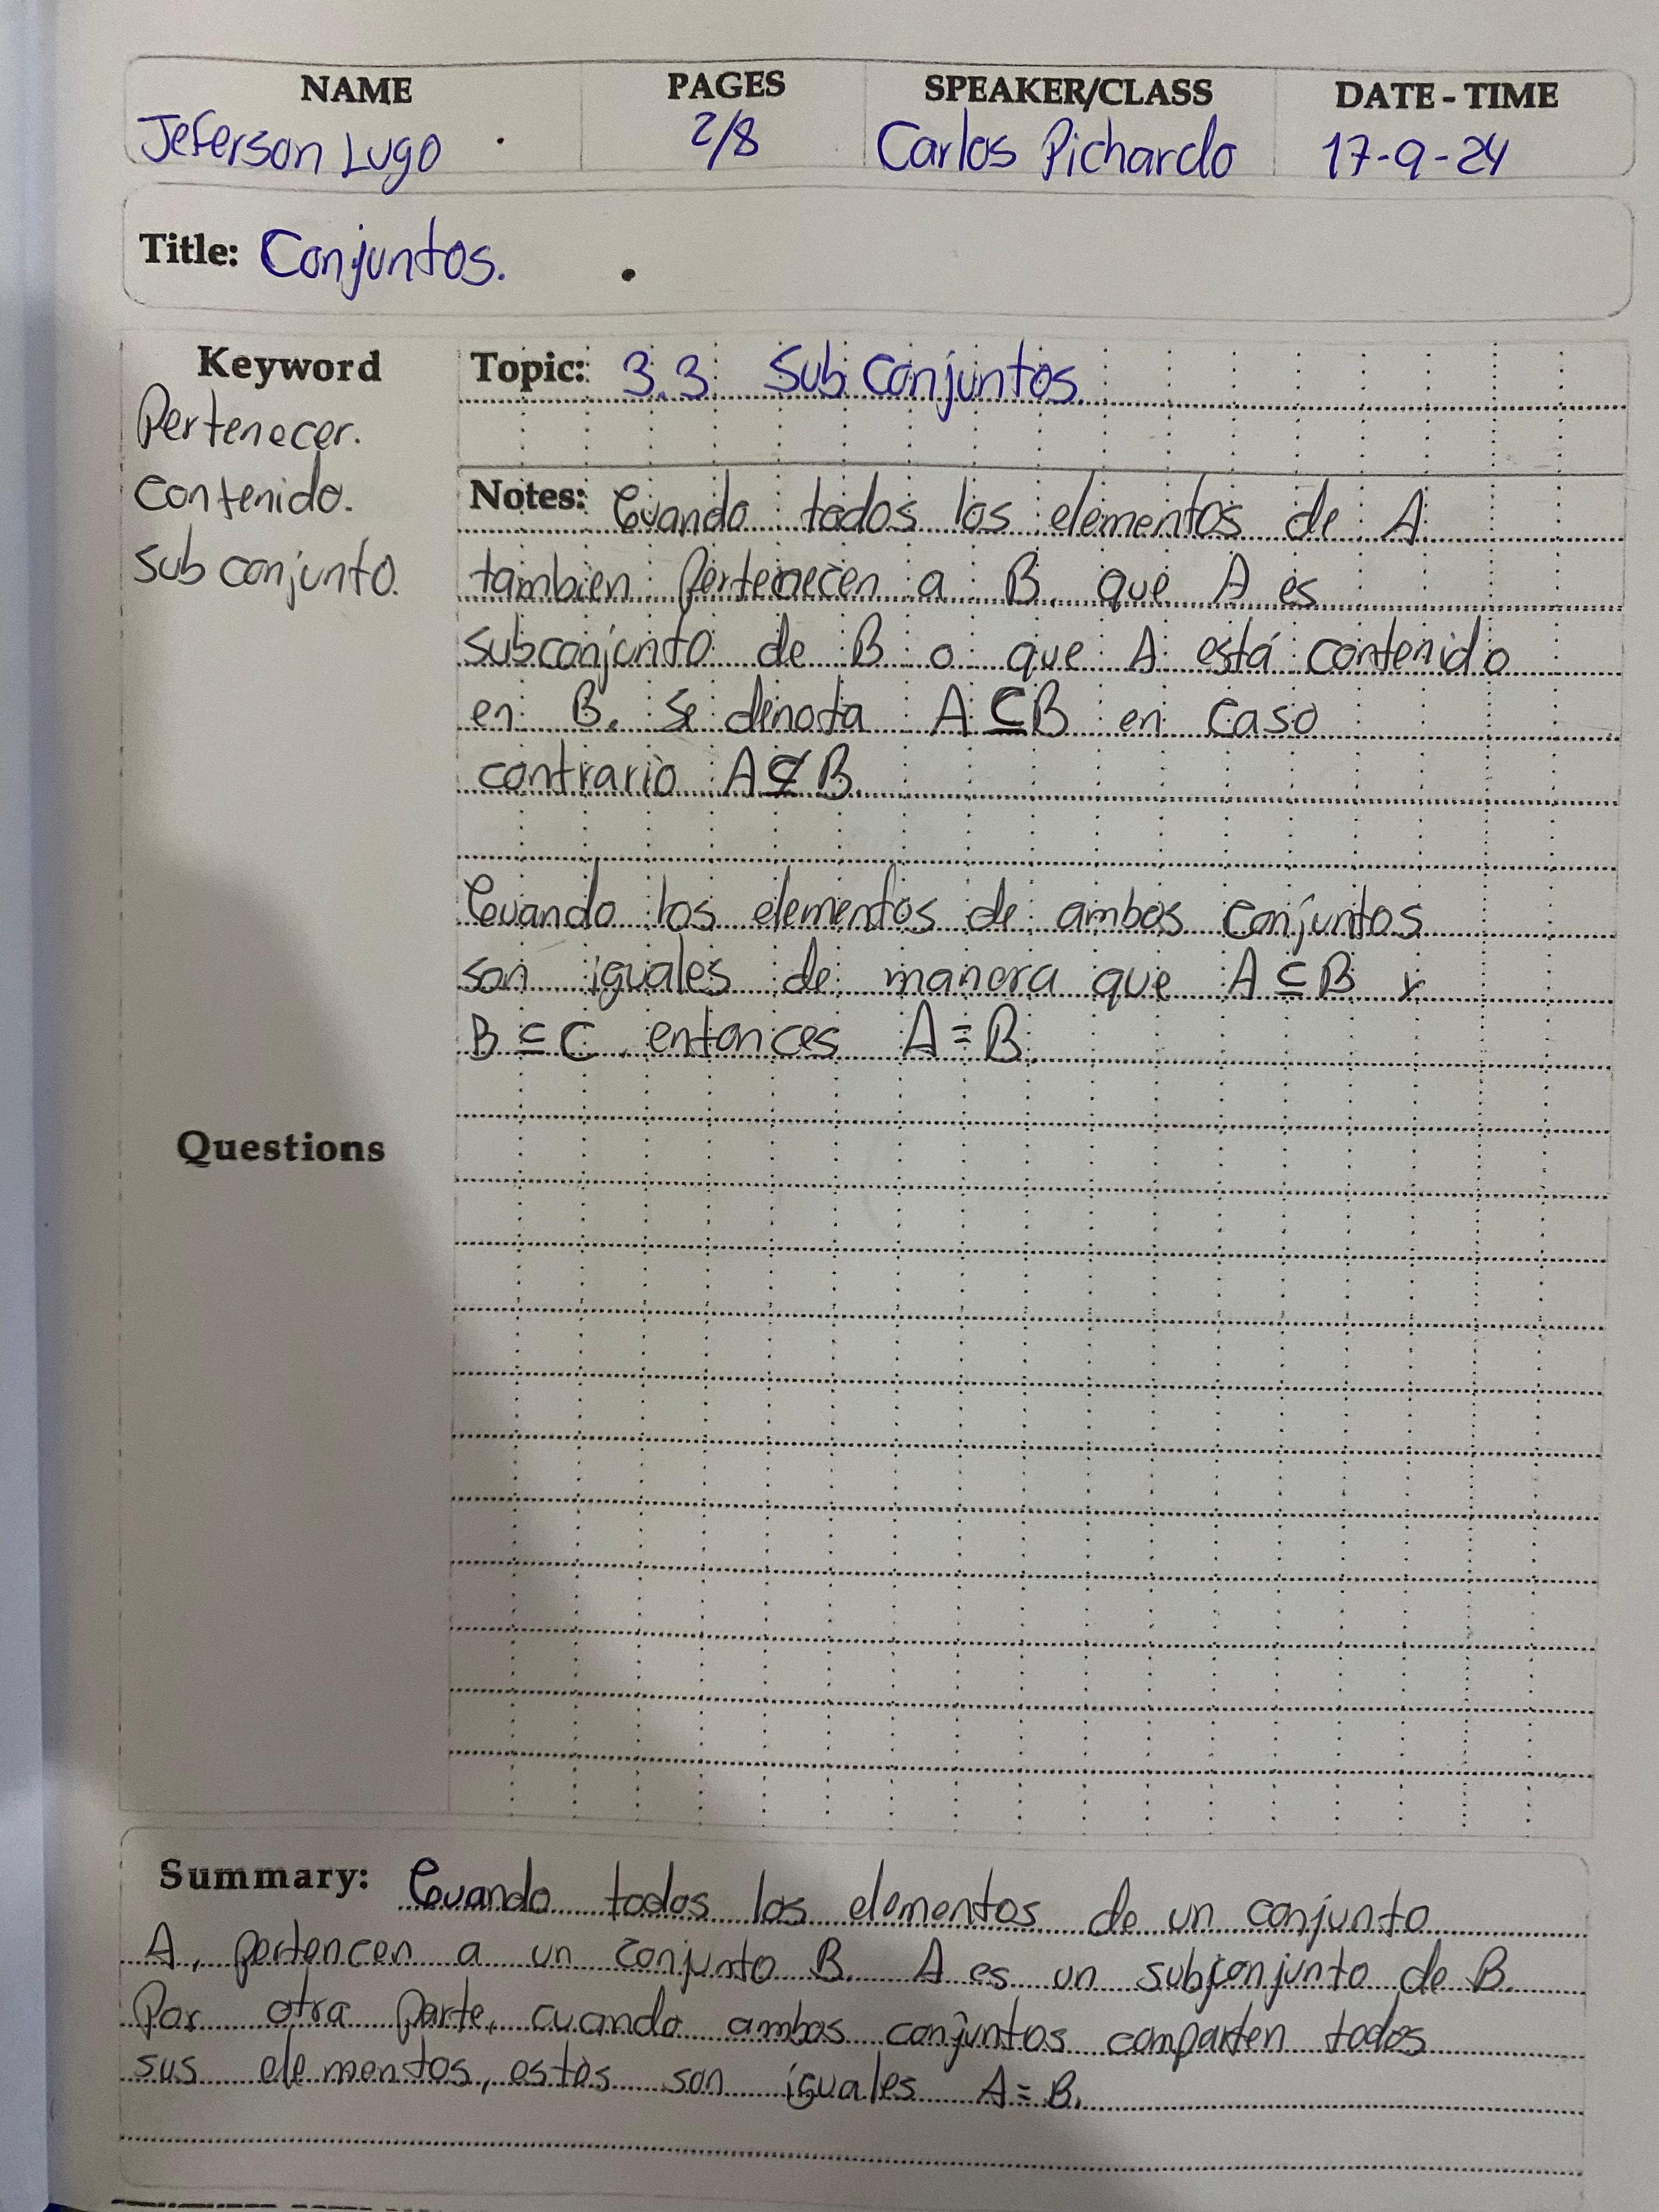 NAME PAGES SPEAKER/CLASS DATE - TIME
Jeferson Lugo 2/8 Carlos Pichardo 17-9-24
Title: Conjuntos.
Keyword
Pertenecer.
Contenido.
Sub conjunto.
Topic: 3.3. Sub Conjuntos.
Notes: Cuando todos los elementos de A
tambien pertenecen a B, que A es
subconjunto de B o que A está contenido
en B. Se denota A ⊆ B en caso
contrario A ⊈ B.
Cuando los elementos de ambos conjuntos
son iguales de manera que A ⊆ B y
B ⊆ C, entonces A = B.
Questions
Summary: Cuando todos los elementos de un conjunto
A, pertencen a un conjunto B. A es un subconjunto de B.
Por otra parte, cuando ambos conjuntos comparten todos
sus elementos, estos son iguales A = B.